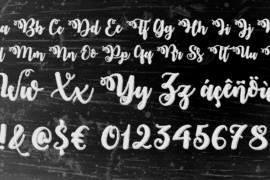 a Bb Cc Dd Ee Ff Gg Hh Ii Jj
Mm Nn Oo Pp Qq Rr Ss Tt Uu
Ww Xx Yy Zz áçêñöù
!&@$€ 012345678